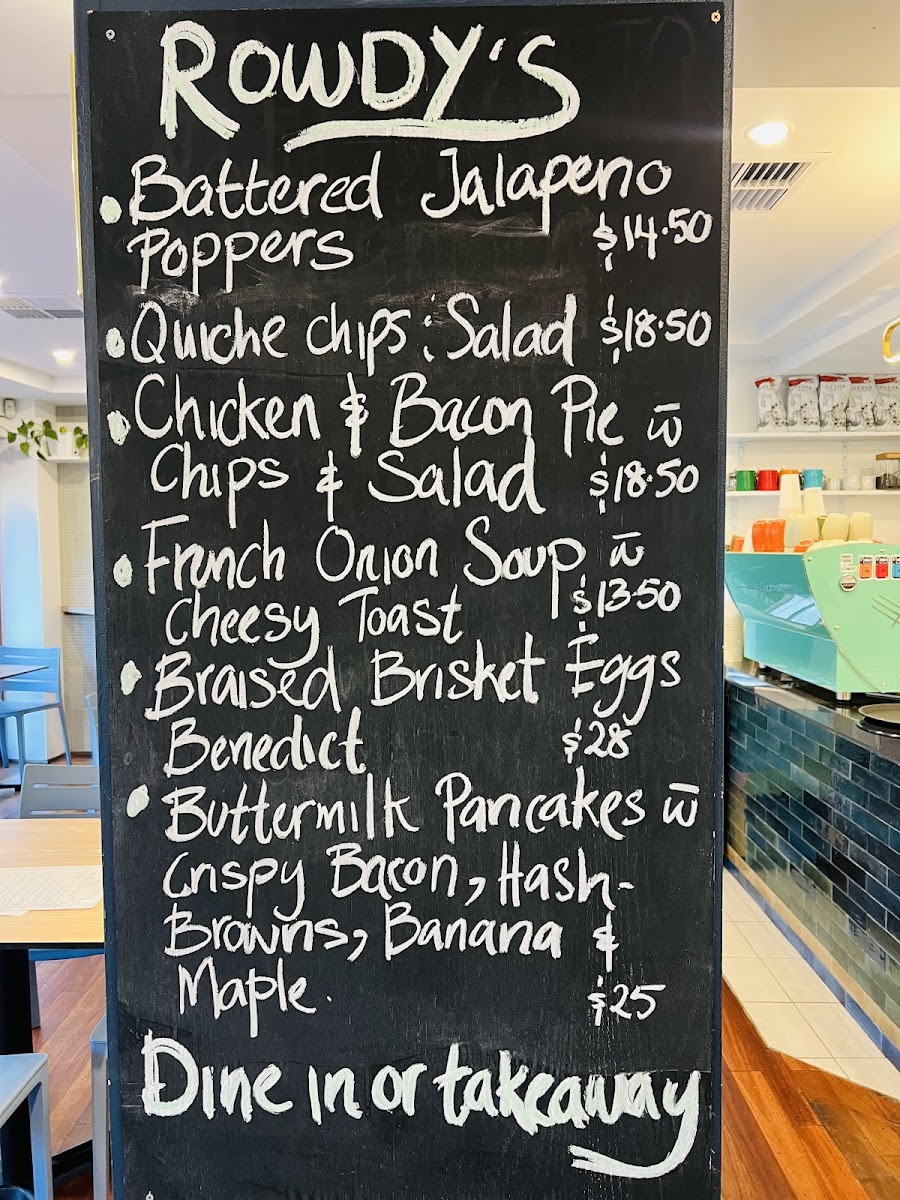 ROWDY'S
• Battered Jalapeno
Poppers $14.50
• Quiche chips : Salad $18.50
• Chicken & Bacon Pie w̄
Chips & Salad $18.50
• French Onion Soup w̄
Cheesy Toast $13.50
• Braised Brisket Eggs
Benedict $28
• Buttermilk Pancakes w̄
Crispy Bacon, Hash-
Browns, Banana &
Maple. $25
Dine in or takeaway